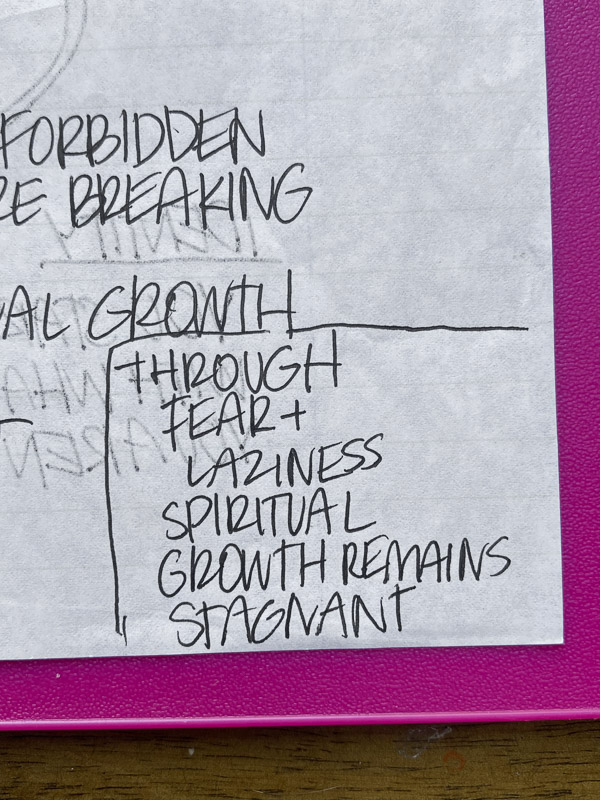 FORBIDDEN
RE BREAKING
AL GROWTH
THROUGH
FEAR +
LAZINESS
SPIRITUAL
GROWTH REMAINS
STAGNANT